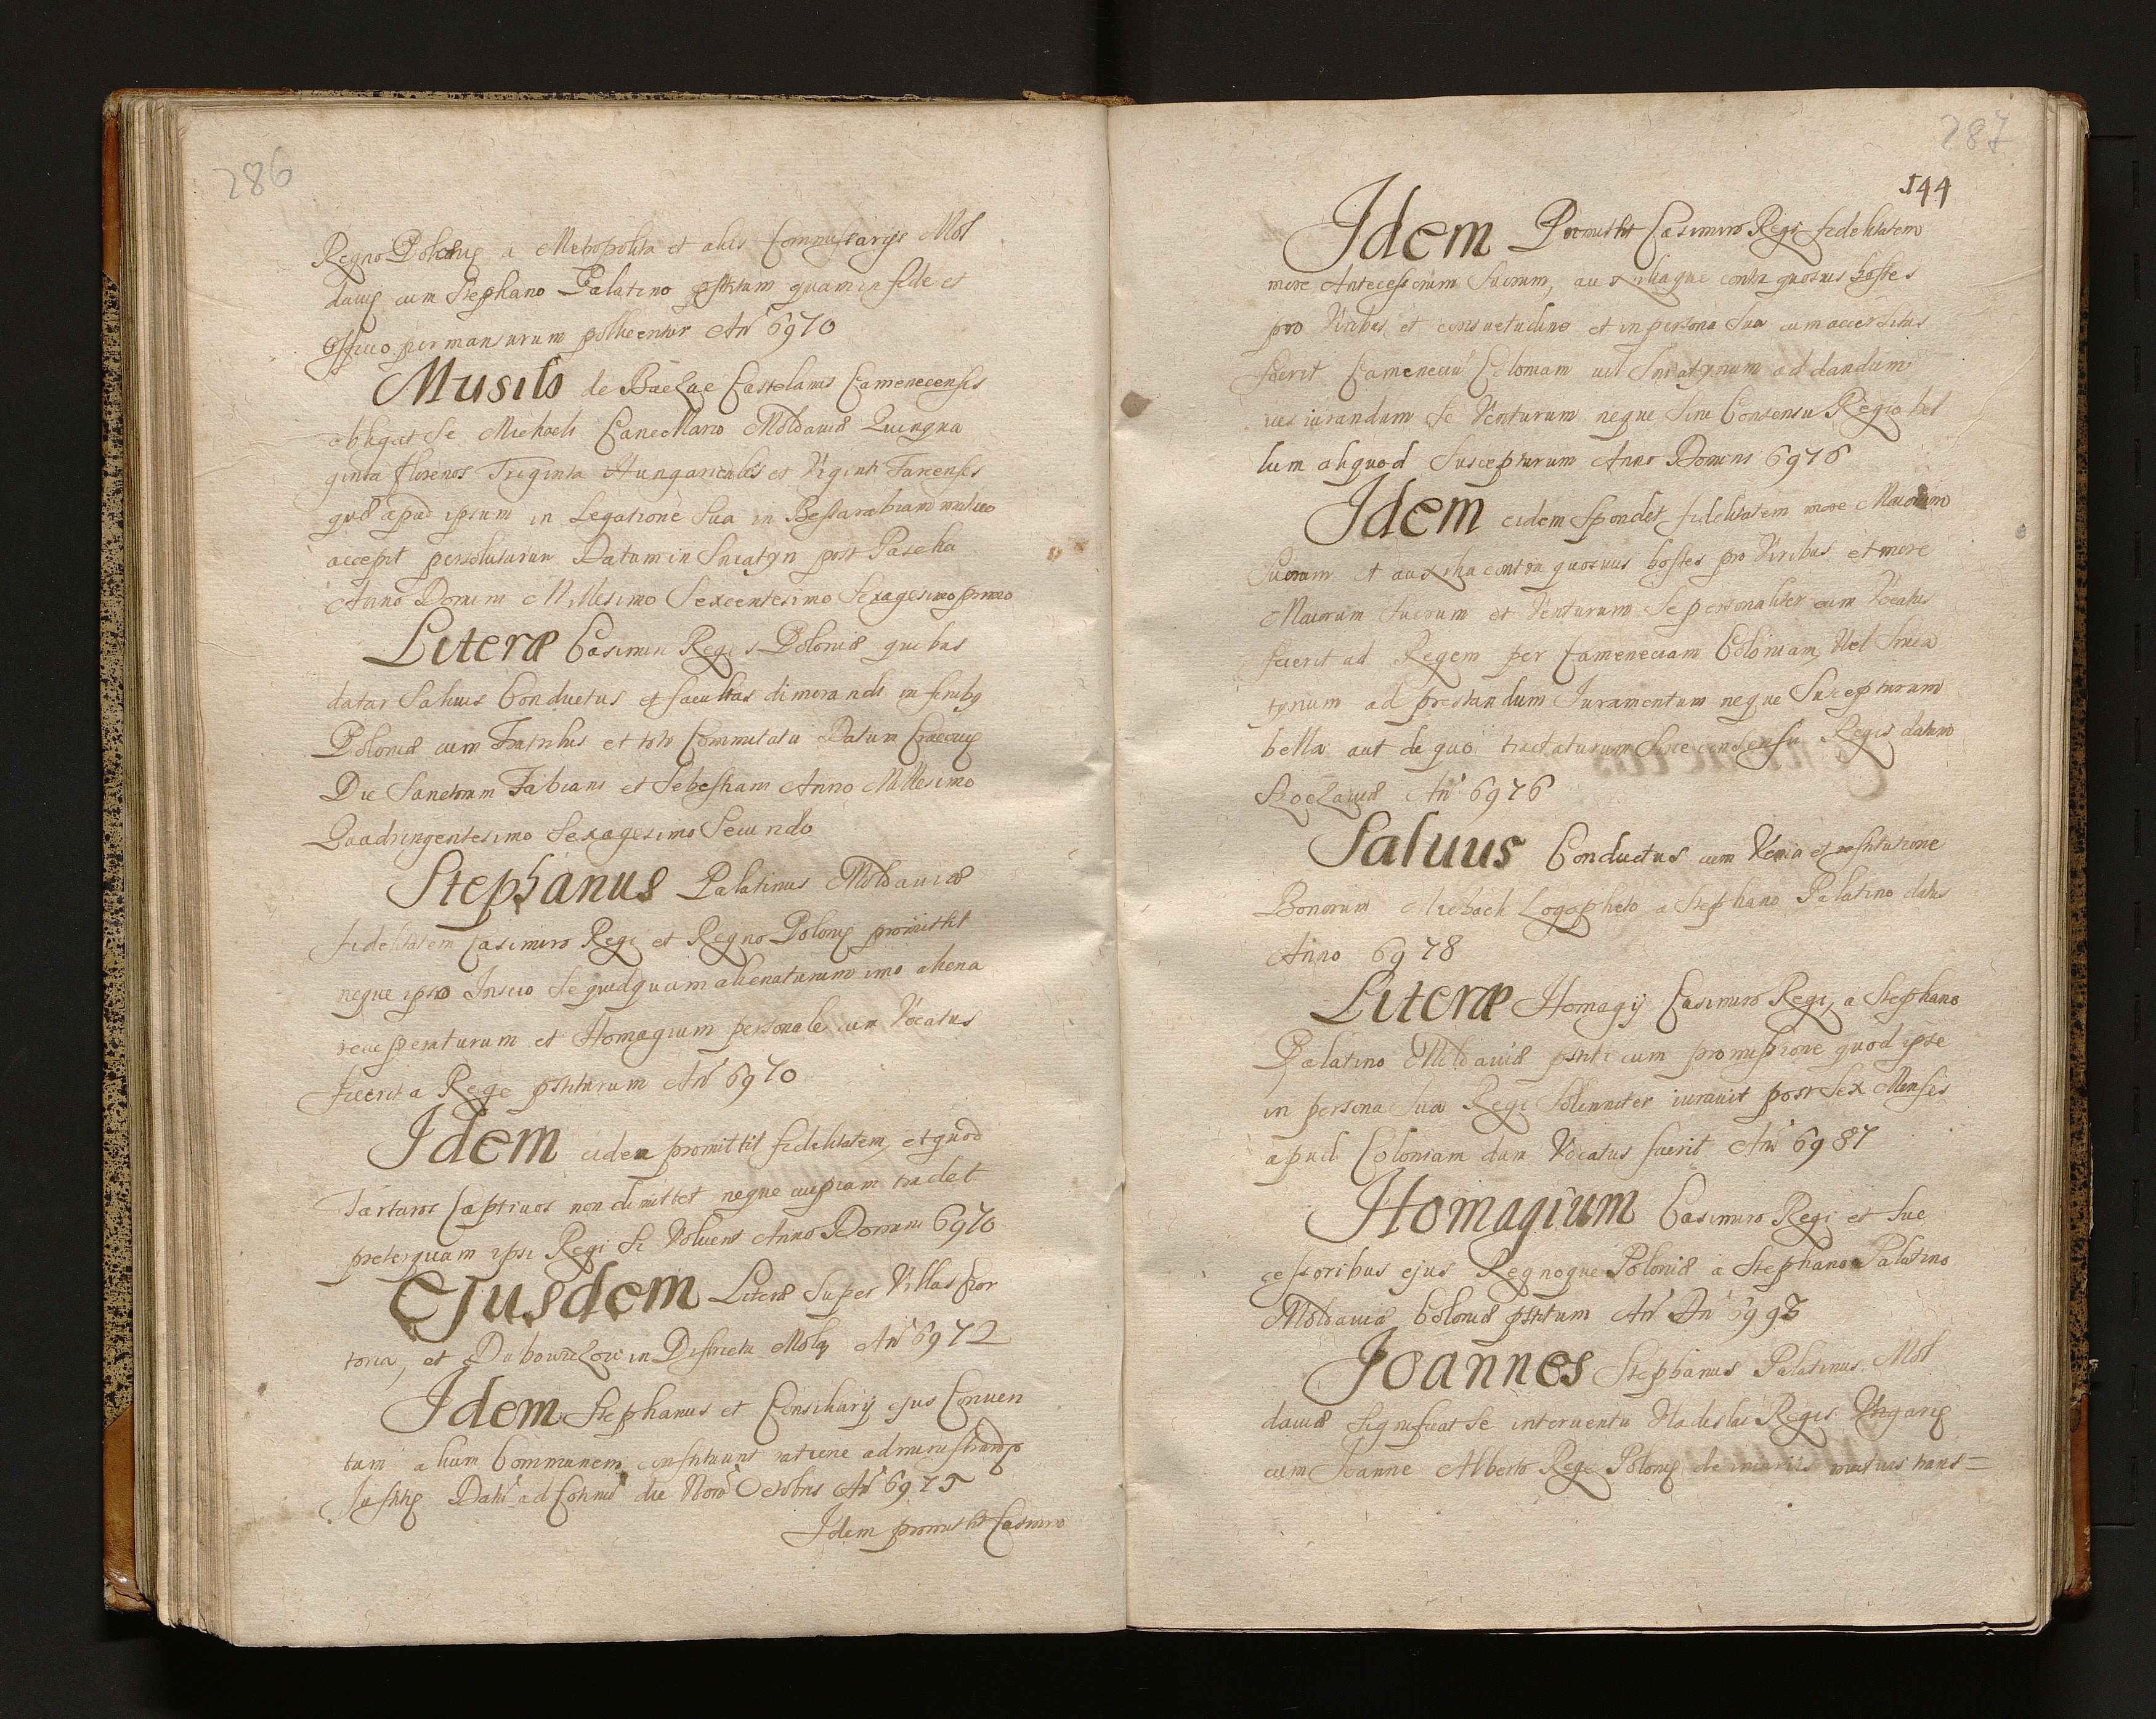 286
Regno Poloniæ a Metropolita et aliis Commissarijs Mol
dauiæ cum Stephano Palatino pstitum quam in fide et
Officio permansurum pollicentur An̄ 6970
Musilo de Baczae Castelanus Camenecensis
obligat se Michaeli Cancellario Moldauiæ Quingua
ginta florenos Triginta Hungaricales et Viginti Tarcenses
quos apud ipsum in Legatione Sua in Bessarabiam mutuo
accepit persoluturum Datum in Sniatyn post Pascha
Anno Domini Millesimo Sexcentesimo Sexagesimo primo
Literæ Casimiri Regis Poloniæ quibus
datur Saluus Conductus et facultas dimorandi in finibq
Poloniæ cum Fratribus et toto Commitatu Datum Cracouiæ
Die Sanctorum Fabiani et Sebastiani Anno Millesimo
Quadringentesimo Sexagesimo Secundo
Stephanus Palatinus Moldauiæ
fidelitatem Casimiro Regi et Regno Poloniæ promittit
neque ipso Inscio se quidquam alienaturum imo aliena
recuperaturum et Homagium personale cum Vocatus
fuerit a Rege pstiturum An̄ 6970
Idem eidem promittit fidelitatem, et quod
Tartaros Captiuos non dimittet neque cuipiam tradet
preterquam ipsi Regi si Voluerit Anno Domini 6970
Ejusdem Literæ Super Villas Cior
toria, et Dubowiczow in Districtu An̄ 6972
Idem Stephanus et Consiliarij ejus Conuen
tum alium Communem constituunt ratione administrandæ
Justitiæ Datū ad Cotnūs die Octobris An̄ 6975
Idem promittit Casimiro
287
144
Idem Promittit Casimiro Regi fidelitatem
more Antecessorum Suorum, auxiliaque contra quosuis hostes
pro Viribus et consuetudine et in persona Sua cum accersitus
fuerit Cameneciū Coloniam uel Sniatynum ad dandum
ius iurandum se Venturum neque Sine Consensu Regio bel
lum aliquod Suscepturum Anno Domini 6976
Idem eidem Spondet fidelitatem more Maiorum
Suorum et auxilia contra quosuis hostes pro Viribus et more
Maiorum Suorum et Venturum Se personaliter cum Vocatus
fuerit ad Regem per Cameneciam Coloniam, Vel Snia
tynum ad prestandum Iuramentum neque Suscepturum
bella aut de quo tractaturum Sine consensu Regis datum
An̄ 6976
Saluus Conductus cum Venia et restitutione
Bonorum Michaeli Logopheto a Stephano Palatino datus
Anno 6978
Literæ Homagij Casimiro Regi, a Stephano
Palatino Moldauiæ pstiti cum promissione quod ipse
in persona Sua Regi Solenniter iurauit post Sex Menses
apud Coloniam dum Vocatus fuerit An̄ 6987
Homagium Casimiro Regi et Suc
cessoribus ejus Regnoque Poloniæ a Stephano Palatino
Moldauiæ Coloniæ pstitum An̄ Dn̄ 6993
Joannes Stephanus Palatinus Mol
dauiæ Significat Se interuentu Vladislai Regis Vngariæ
cum Joanne Alberto Rege Poloniæ de iniuriis mutuis trans=